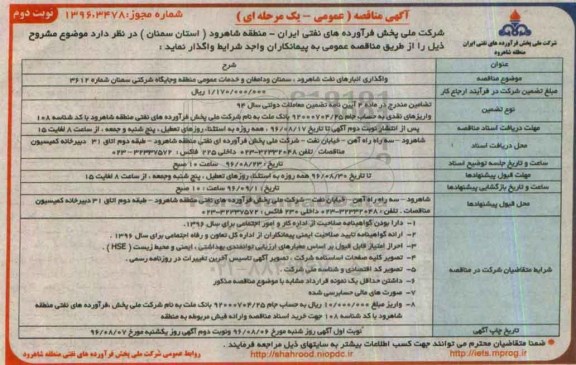 آگهی مناقصه (عمومی – یک مرحله ای)
شماره مجوز: ۱۳۹۶،۳۴۷۸
نوبت دوم
شرکت ملی پخش فرآورده های نفتی ایران
منطقه شاهرود
شرکت ملی پخش فرآورده های نفتی ایران – منطقه شاهرود (استان سمنان) در نظر دارد موضوع مشروح
ذیل را از طریق مناقصه عمومی به پیمانکاران واجد شرایط واگذار نماید:
عنوان
شرح
موضوع مناقصه
واگذاری انبارهای نفت شاهرود، سمنان ودامغان و خدمات عمومی منطقه وجایگاه شرکتی سمنان شماره ۳۶۱۲
مبلغ تضمین شرکت در فرآیند ارجاع کار
۱/۱۷۰/۰۰۰/۰۰۰ ریال
نوع تضمین
تضامین مندرج در ماده ۴ آیین نامه تضمین معاملات دولتی سال ۹۴
واریزهای نقدی به حساب جام ۹۲۰۰۰۷۰۴/۲۵ بانک ملت به نام شرکت ملی پخش فرآورده های نفتی منطقه شاهرود با کد شناسه ۱۰۸
مهلت دریافت اسناد مناقصه
پس از انتشار نوبت دوم آگهی تا تاریخ ۹۶/۰۸/۱۷ همه روزه به استثناء روزهای تعطیل، پنج شنبه و جمعه، از ساعت ۸ لغایت ۱۵
محل دریافت اسناد
شاهرود – سه راه راه آهن – خیابان نفت – شرکت ملی پخش فرآورده های نفتی منطقه شاهرود – طبقه دوم اتاق ۳۱ دبیرخانه کمیسیون
مناقصات تلفن: ۳۲۳۳۲۰۴۸-۰۲۳ داخلی ۲۲۵ فاکس: ۳۲۳۳۷۵۷۲-۰۲۳
ساعت و تاریخ جلسه توضیح اسناد
تاریخ: ۹۶/۰۸/۲۳ ساعت ۱۰ صبح
مهلت قبول پیشنهادها
تا تاریخ ۹۶/۰۸/۳۰ همه روزه به استثناء روزهای تعطیل، پنج شنبه وجمعه، از ساعت ۸ لغایت ۱۵
ساعت و تاریخ بازگشایی پیشنهادها
تاریخ: ۹۶/۰۹/۱ ساعت: ۱۰ صبح
محل قبول پیشنهادها
شاهرود – سه راه راه آهن – خیابان نفت – شرکت ملی پخش فرآورده های نفتی منطقه شاهرود – طبقه دوم اتاق ۳۱ دبیرخانه کمیسیون
مناقصات. تلفن: ۳۲۳۳۲۰۴۸-۰۲۳ داخلی ۲۳۰ فاکس: ۳۲۳۳۷۵۷۲-۰۲۳
شرایط متقاضیان شرکت در مناقصه
۱- دارا بودن گواهینامه صلاحیت از اداره کار و امور اجتماعی برای سال ۱۳۹۶.
۲- ارائه گواهینامه تایید صلاحیت ایمنی پیمانکاران از اداره کل تعاون و رفاه اجتماعی برای سال ۱۳۹۶.
۳- احراز امتیاز قابل قبول بر اساس معیارهای ارزیابی توانمندی بهداشتی، ایمنی و محیط زیست (HSE).
۴- تصویر کلیه صفحات اساسنامه شرکت، تصویر آگهی تاسیس آخرین تغییرات در روزنامه رسمی.
۵- تصویر کد اقتصادی و شناسه ملی شرکت.
۶- داشتن حداقل یک نمونه قرارداد مشابه با موضوع مناقصه مذکور
۷- صورت های مالی حسابرسی شده
۸- واریز مبلغ ۱۰/۰۰۰/۰۰۰ ریال به حساب جام ۹۲۰۰۰۷۰۴/۲۵ بانک ملت به نام شرکت ملی پخش فرآورده های نفتی منطقه
شاهرود با کد شناسه ۱۰۸ جهت خرید اسناد مناقصه وارائه فیش مربوطه به مناقصه
تاریخ چاپ آگهی
نوبت اول آگهی روز شنبه مورخ ۹۶/۰۸/۰۶ ونوبت دوم آگهی روز یکشنبه مورخ ۹۶/۰۸/۰۷
ضمنا متقاضیان محترم می توانند جهت کسب اطلاعات بیشتر به سایتهای ذیل مراجعه فرمایند.
http://iets.mporg.ir
http://shahrood.niopdc.ir
روابط عمومی شرکت ملی پخش فرآورده های نفتی منطقه شاهرود